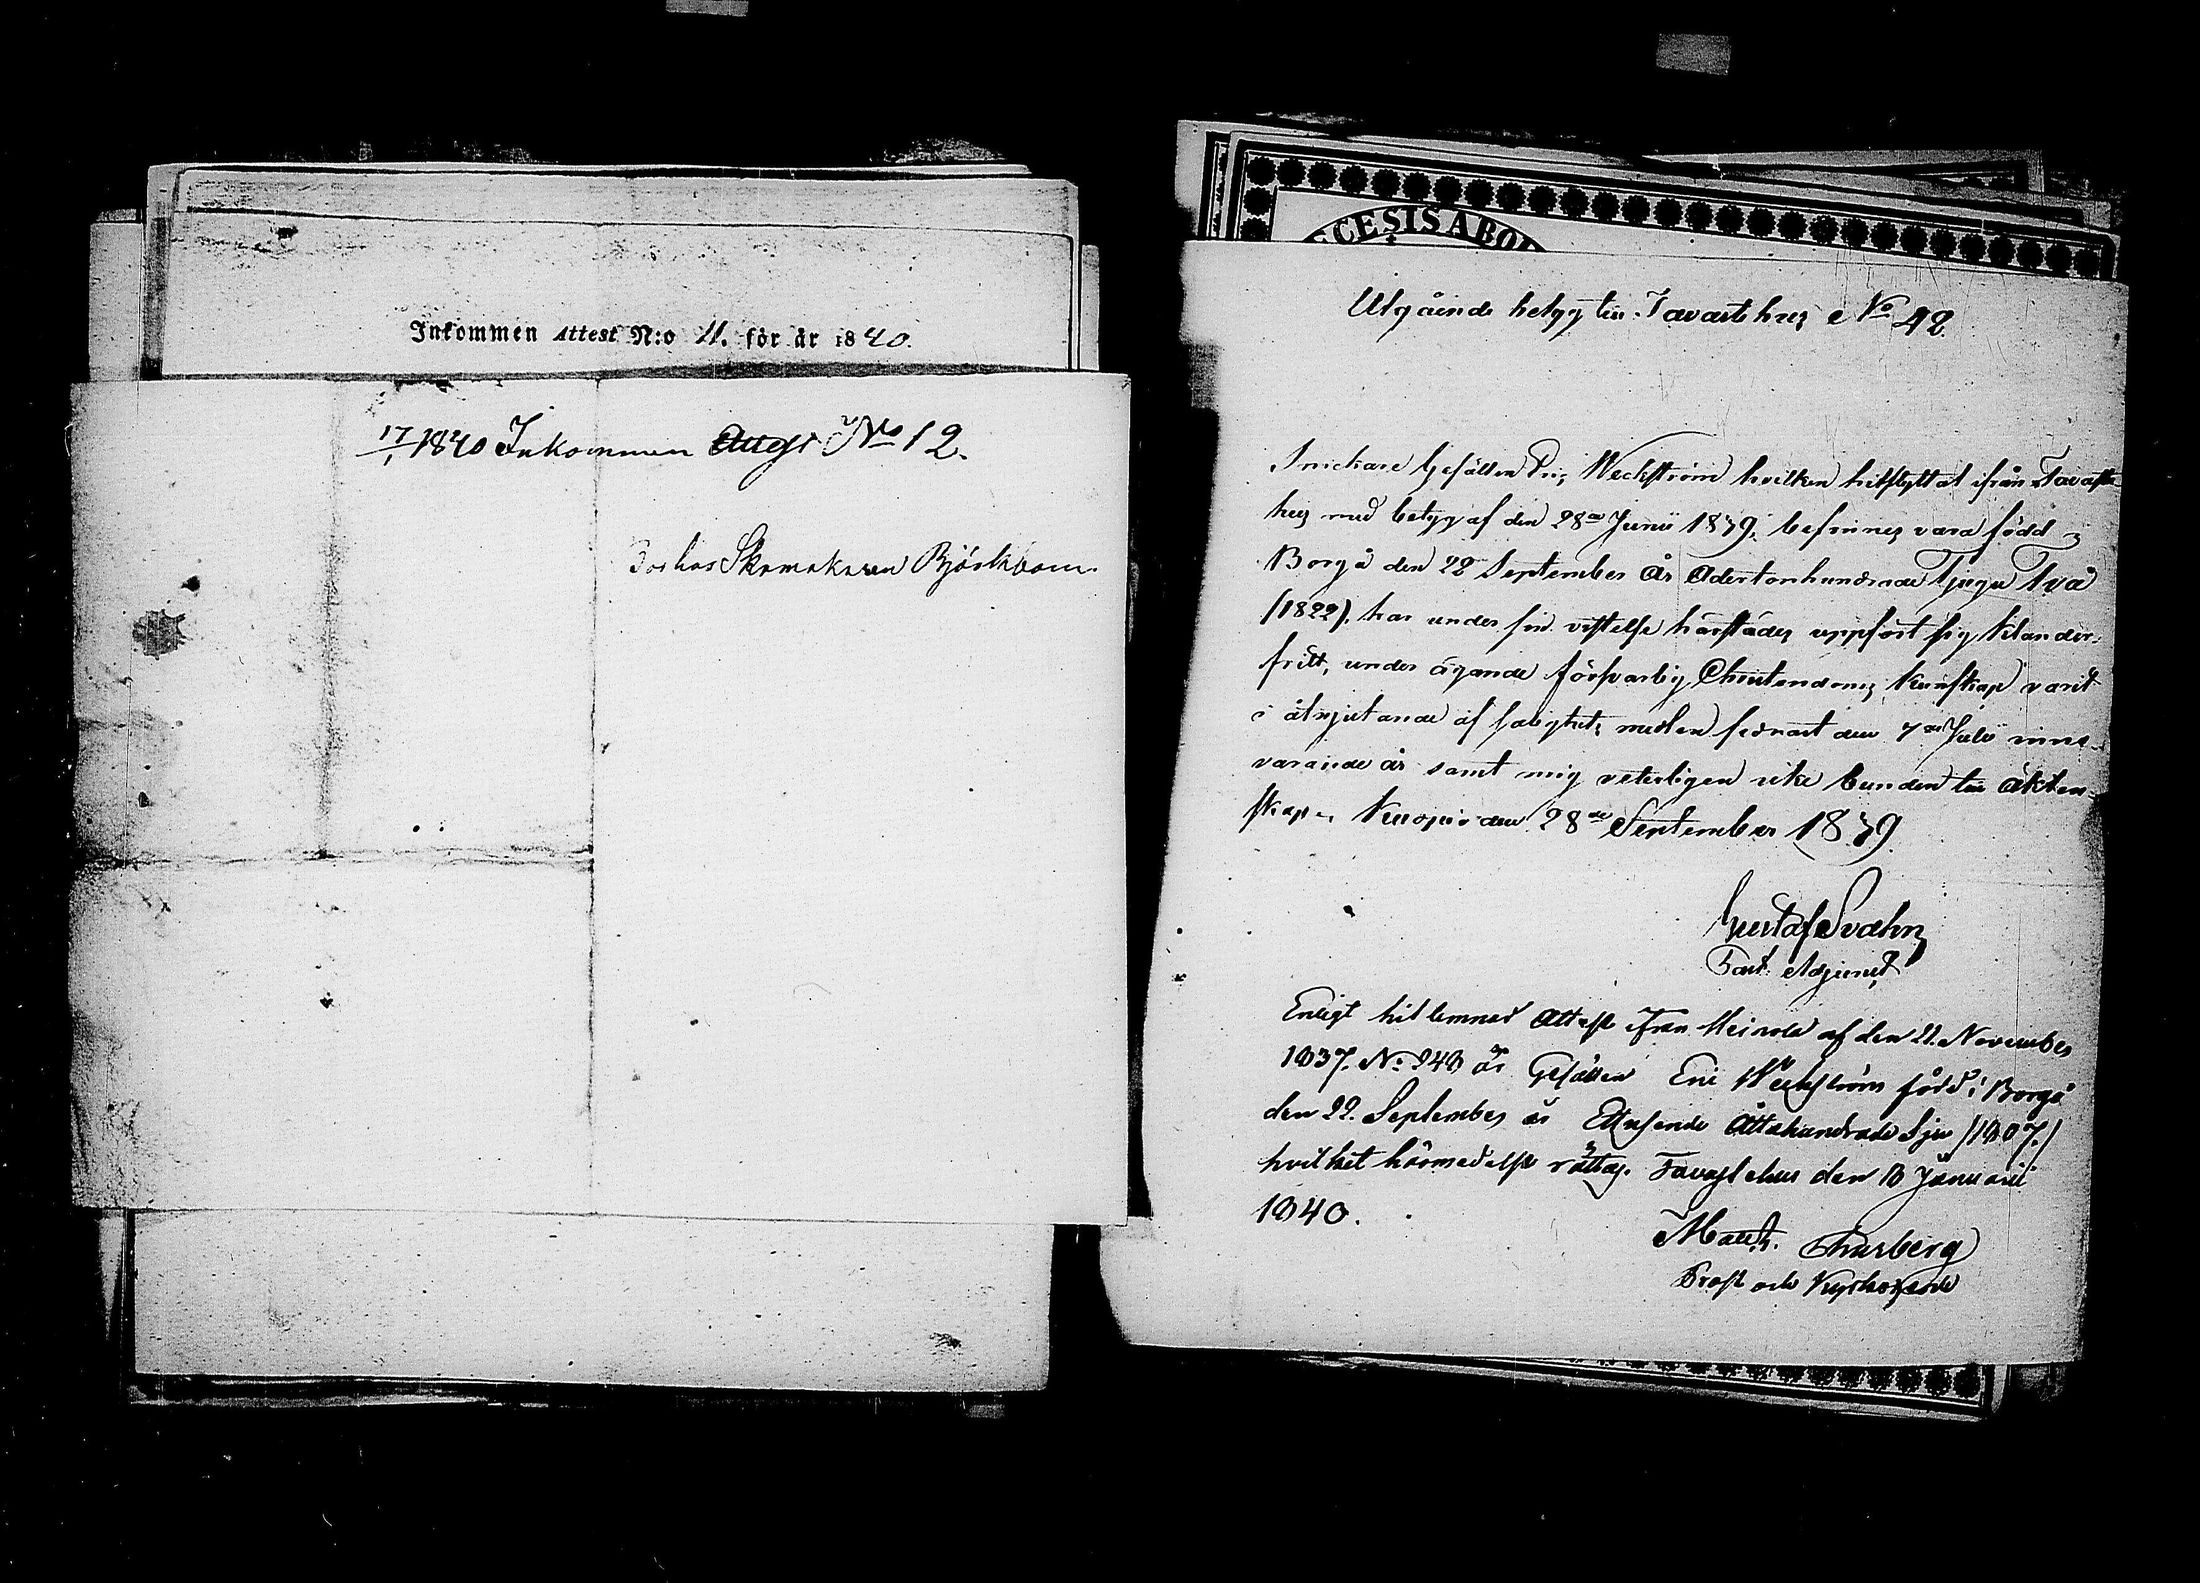 Inkommen Attest N:o 11. för år 1840.
17/1 1840 Inkommen Attest No 12.
Bor hos Skomakaren Björkbom.
CESIS ABO
Utgående betyg till Tavastehus No 42
Snickare Gesällen Eric Weckström hvilken hitflyttat ifrån Tavaste
hus med betyg af den 28de Junii 1839, befinnes vara född i
Borgå den 22 September År Adertonhundrade Tjugu Två
(1822), har under sin vistelse härstädes uppfört sig klander-
fritt, under ägande försvarlig Christendoms kunskap varit
i åtnjutande af salighets medlen sednast den 7de Julii inne-
varande år samt mig veterligen icke bunden till äkten-
skap. Kuopio den 28de September 1839.
Gustaf Svahn
Past. Adjunct
Enligt hit lemnad Attest ifrån Heinola af den 21. November
1837. No 243 är Gesällen Eric Weckström född i Borgå
den 22. September år Ettusende Åttahundrade Sju /1807./
hvilket härmedelst rättas. Tavastehus den 13 Januarii
1840.
Mauh. Thurberg
Prost och Kyrkoherde